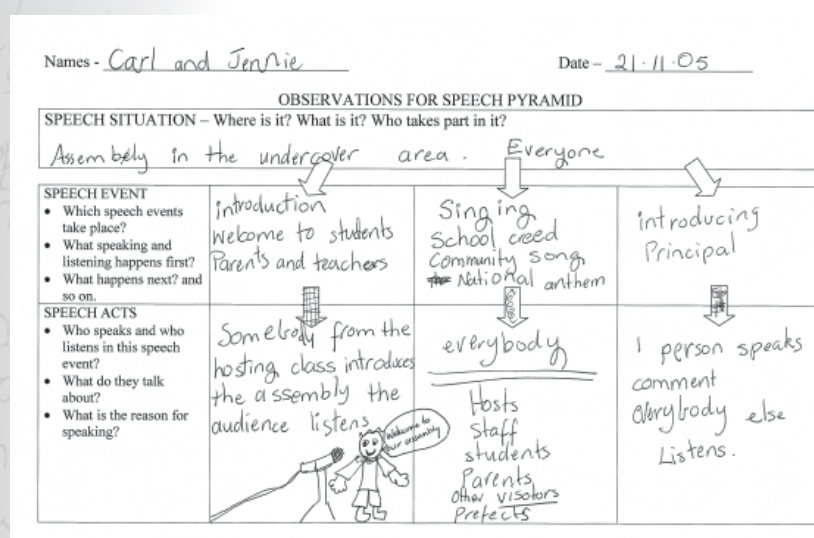 Names - Carl and Jennie
Date – 21.11.05
OBSERVATIONS FOR SPEECH PYRAMID
SPEECH SITUATION – Where is it? What is it? Who takes part in it?
Assembely in the undercover area. Everyone
SPEECH EVENT
• Which speech events
take place?
• What speaking and
listening happens first?
• What happens next? and
so on.
introduction
Welcome to students
Parents and teachers
Singing
School creed
Community song
National anthem
introducing
Principal
SPEECH ACTS
• Who speaks and who
listens in this speech
event?
• What do they talk
about?
• What is the reason for
speaking?
Somebody from the
hosting class introduces
the assembly the
audience listens
Welcome to
our assembly
everybody
Hosts
Staff
students
Parents
other visotors
Prefects
1 person speaks
comment
everybody else
Listens.